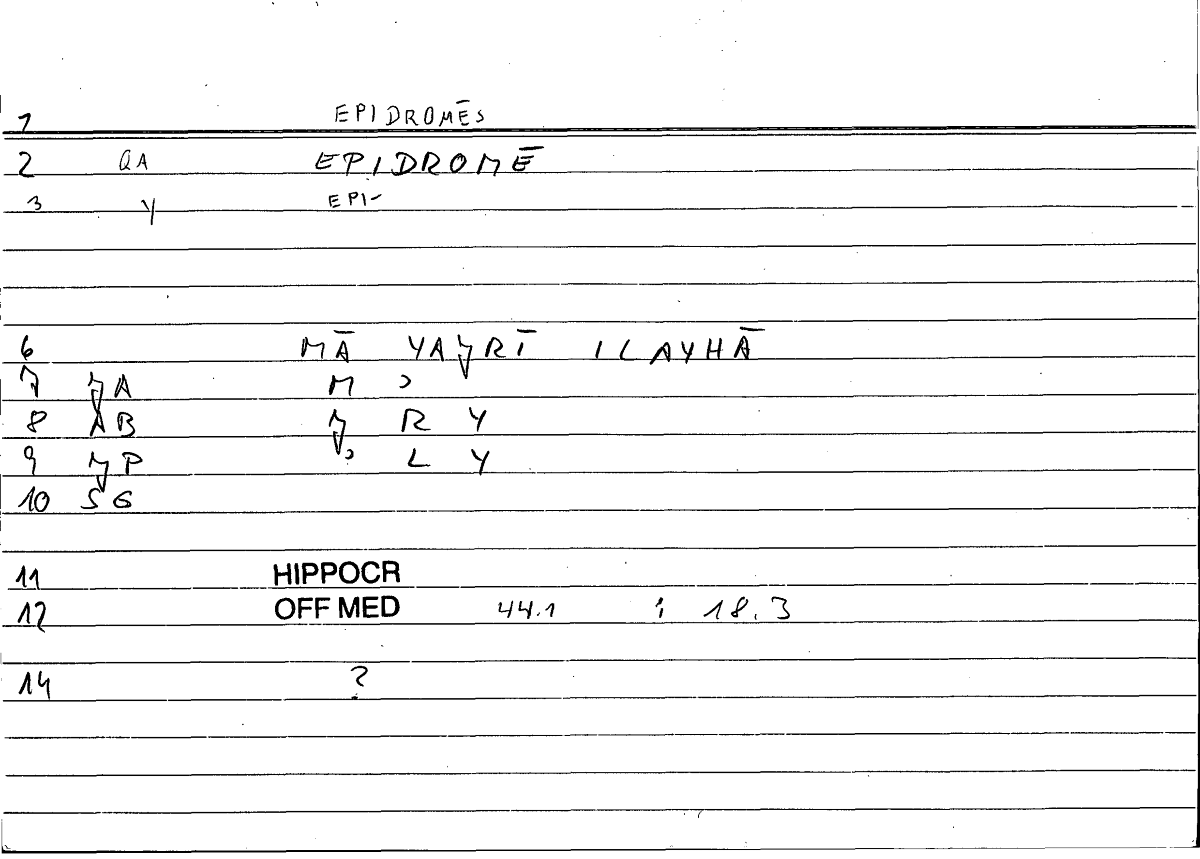 1 EPIDROMĒS
2 QA EPIDROMĒ
3 Y EPI-
6 MĀ YAǦRĪ ILAYHĀ
7 ǦA M ʾ
8 AB Ǧ R Y
9 ǦP ʾ L Y
10 SG
11 HIPPOCR
12 OFF MED 44.1 ; 18.3
14 ?